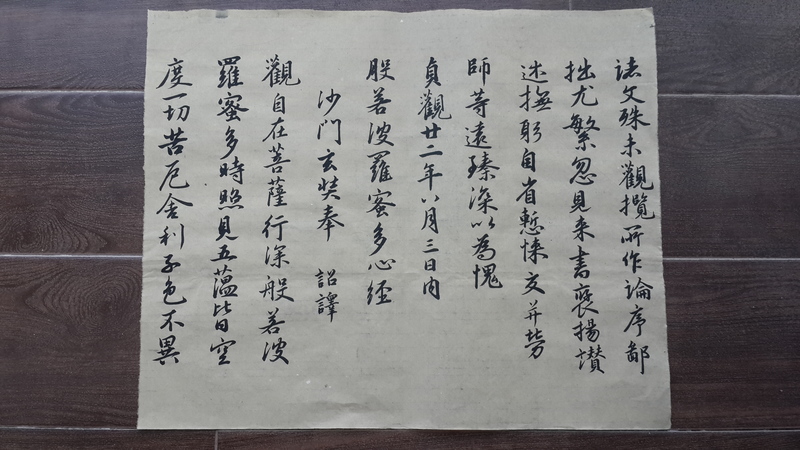 諸文殊未觀攬所作論序鄙
拙尤繁忽見来書褒揚讃
述撫躬自省慙悚交并勞
師等遠臻深以為愧
貞觀廿二年八月三日内
般若波羅蜜多心經
沙門玄奘奉 詔譯
觀自在菩薩行深般若波
羅蜜多時照見五蘊皆空
度一切苦厄舍利子色不異